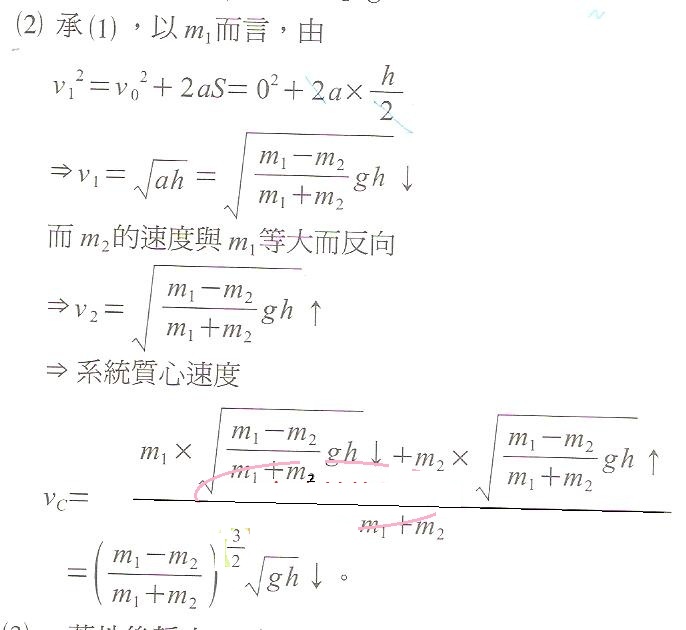 (2) 承(1)，以 m₁而言，由
v₁²=v₀²+2aS=0²+2a×h/2
⇒v₁=√(ah)=√((m₁−m₂)/(m₁+m₂) gh) ↓
而 m₂的速度與 m₁等大而反向
⇒v₂=√((m₁−m₂)/(m₁+m₂) gh) ↑
⇒ 系統質心速度
v_C=(m₁×√((m₁−m₂)/(m₁+m₂) gh)↓+m₂×√((m₁−m₂)/(m₁+m₂) gh)↑)/(m₁+m₂)
=((m₁−m₂)/(m₁+m₂))^(3/2) √(gh)↓。